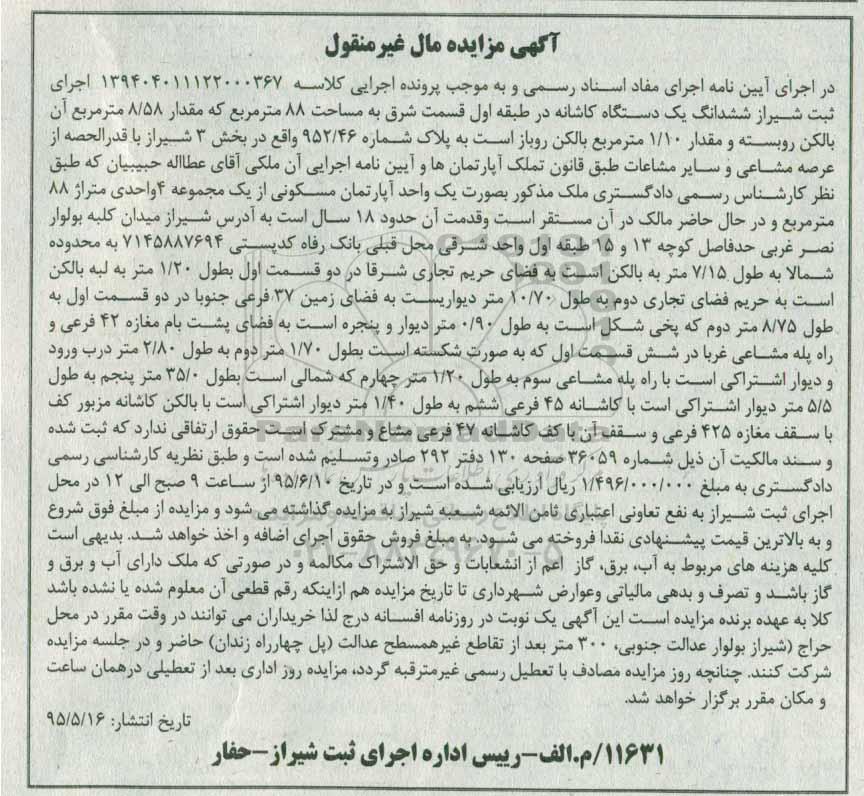 آگهی مزایده مال غیرمنقول
در اجرای آیین نامه اجرای مفاد اسناد رسمی و به موجب پرونده اجرایی کلاسه ۱۳۹۴۰۴۰۱۱۱۲۲۰۰۰۳۶۷ اجرای
ثبت شیراز ششدانگ یک دستگاه کاشانه در طبقه اول قسمت شرق به مساحت ۸۸ مترمربع که مقدار ۸/۵۸ مترمربع آن
بالکن روبسته و مقدار ۱/۱۰ مترمربع بالکن روباز است به پلاک شماره ۹۵۲/۴۶ واقع در بخش ۳ شیراز با قدرالحصه از
عرصه مشاعی و سایر مشاعات طبق قانون تملک آپارتمان ها و آیین نامه اجرایی آن ملکی آقای عطااله حبیبیان که طبق
نظر کارشناس رسمی دادگستری ملک مذکور بصورت یک واحد آپارتمان مسکونی از یک مجموعه ۴واحدی متراژ ۸۸
مترمربع و در حال حاضر مالک در آن مستقر است وقدمت آن حدود ۱۸ سال است به آدرس شیراز میدان کلبه بولوار
نصر غربی حدفاصل کوچه ۱۳ و ۱۵ طبقه اول واحد شرقی محل قبلی بانک رفاه کدپستی ۷۱۴۵۸۸۷۶۹۴ به محدوده
شمالا به طول ۷/۱۵ متر به بالکن است به فضای حریم تجاری شرقا در دو قسمت اول بطول ۱/۲۰ متر به لبه بالکن
است به حریم فضای تجاری دوم به طول ۱۰/۷۰ متر دیواریست به فضای زمین ۳۷ فرعی جنوبا در دو قسمت اول به
طول ۸/۷۵ متر دوم که پخی شکل است به طول ۰/۹۰ متر دیوار و پنجره است به فضای پشت بام مغازه ۴۲ فرعی و
راه پله مشاعی غربا در شش قسمت اول که به صورت شکسته است بطول ۱/۷۰ متر دوم به طول ۲/۸۰ متر درب ورود
و دیوار اشتراکی است با راه پله مشاعی سوم به طول ۱/۲۰ متر چهارم که شمالی است بطول ۳۵/۰ متر پنجم به طول
۵/۵ متر دیوار اشتراکی است با کاشانه ۴۵ فرعی ششم به طول ۱/۴۰ متر دیوار اشتراکی است با بالکن کاشانه مزبور کف
با سقف مغازه ۴۲۵ فرعی و سقف آن با کف کاشانه ۴۷ فرعی مشاع و مشترک است حقوق ارتفاقی ندارد که ثبت شده
و سند مالکیت آن ذیل شماره ۳۶۰۵۹ صفحه ۱۳۰ دفتر ۲۹۲ صادر وتسلیم شده است و طبق نظریه کارشناسی رسمی
دادگستری به مبلغ ۱/۴۹۶/۰۰۰/۰۰۰ ریال ارزیابی شده است و در تاریخ ۹۵/۶/۱۰ از ساعت ۹ صبح الی ۱۲ در محل
اجرای ثبت شیراز به نفع تعاونی اعتباری ثامن الائمه شعبه شیراز به مزایده گذاشته می شود و مزایده از مبلغ فوق شروع
و به بالاترین قیمت پیشنهادی نقدا فروخته می شود. به مبلغ فروش حقوق اجرای اضافه و اخذ خواهد شد. بدیهی است
کلیه هزینه های مربوط به آب، برق، گاز اعم از انشعابات و حق الاشتراک مکالمه و در صورتی که ملک دارای آب و برق و
گاز باشد و تصرف و بدهی مالیاتی وعوارض شهرداری تا تاریخ مزایده هم ازاینکه رقم قطعی آن معلوم شده یا نشده باشد
کلا به عهده برنده مزایده است این آگهی یک نوبت در روزنامه افسانه درج لذا خریداران می توانند در وقت مقرر در محل
حراج (شیراز بولوار عدالت جنوبی، ۳۰۰ متر بعد از تقاطع غیرهمسطح عدالت (پل چهارراه زندان) حاضر و در جلسه مزایده
شرکت کنند. چنانچه روز مزایده مصادف با تعطیل رسمی غیرمترقبه گردد، مزایده روز اداری بعد از تعطیلی درهمان ساعت
و مکان مقرر برگزار خواهد شد.
تاریخ انتشار: ۹۵/۵/۱۶
۱۱۶۳۱/م.الف-رییس اداره اجرای ثبت شیراز-حفار